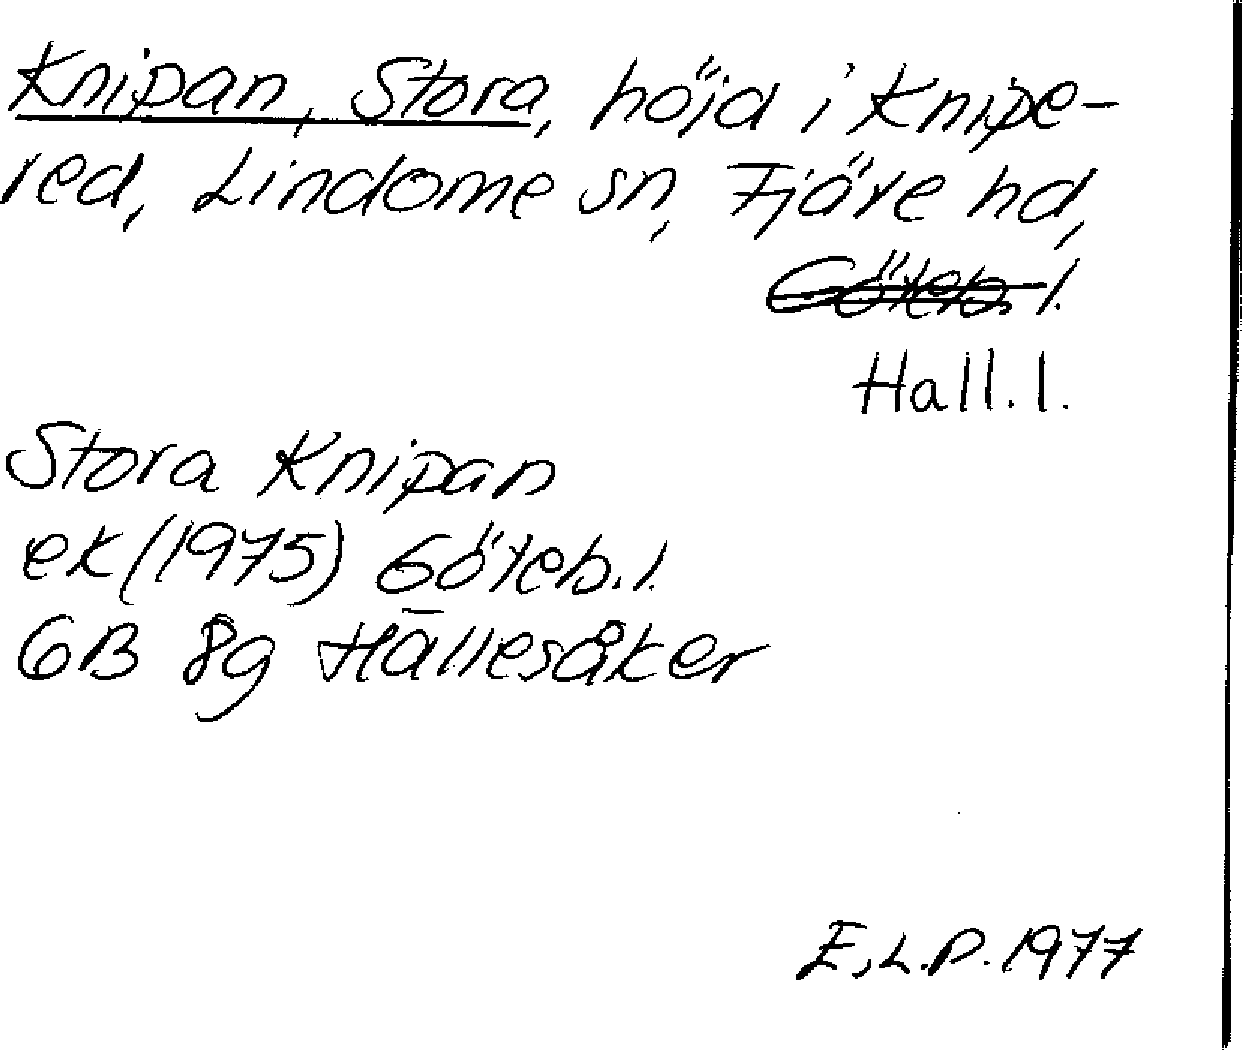 Knipan, Stora, höjd i Knipe-
red, Lindome sn, Fjäre hd,
Göteb. l.
Hall. l.
Stora Knipan
ek (1975) Göteb. l.
6B 8g Hällesåker
E.L.P. 1977